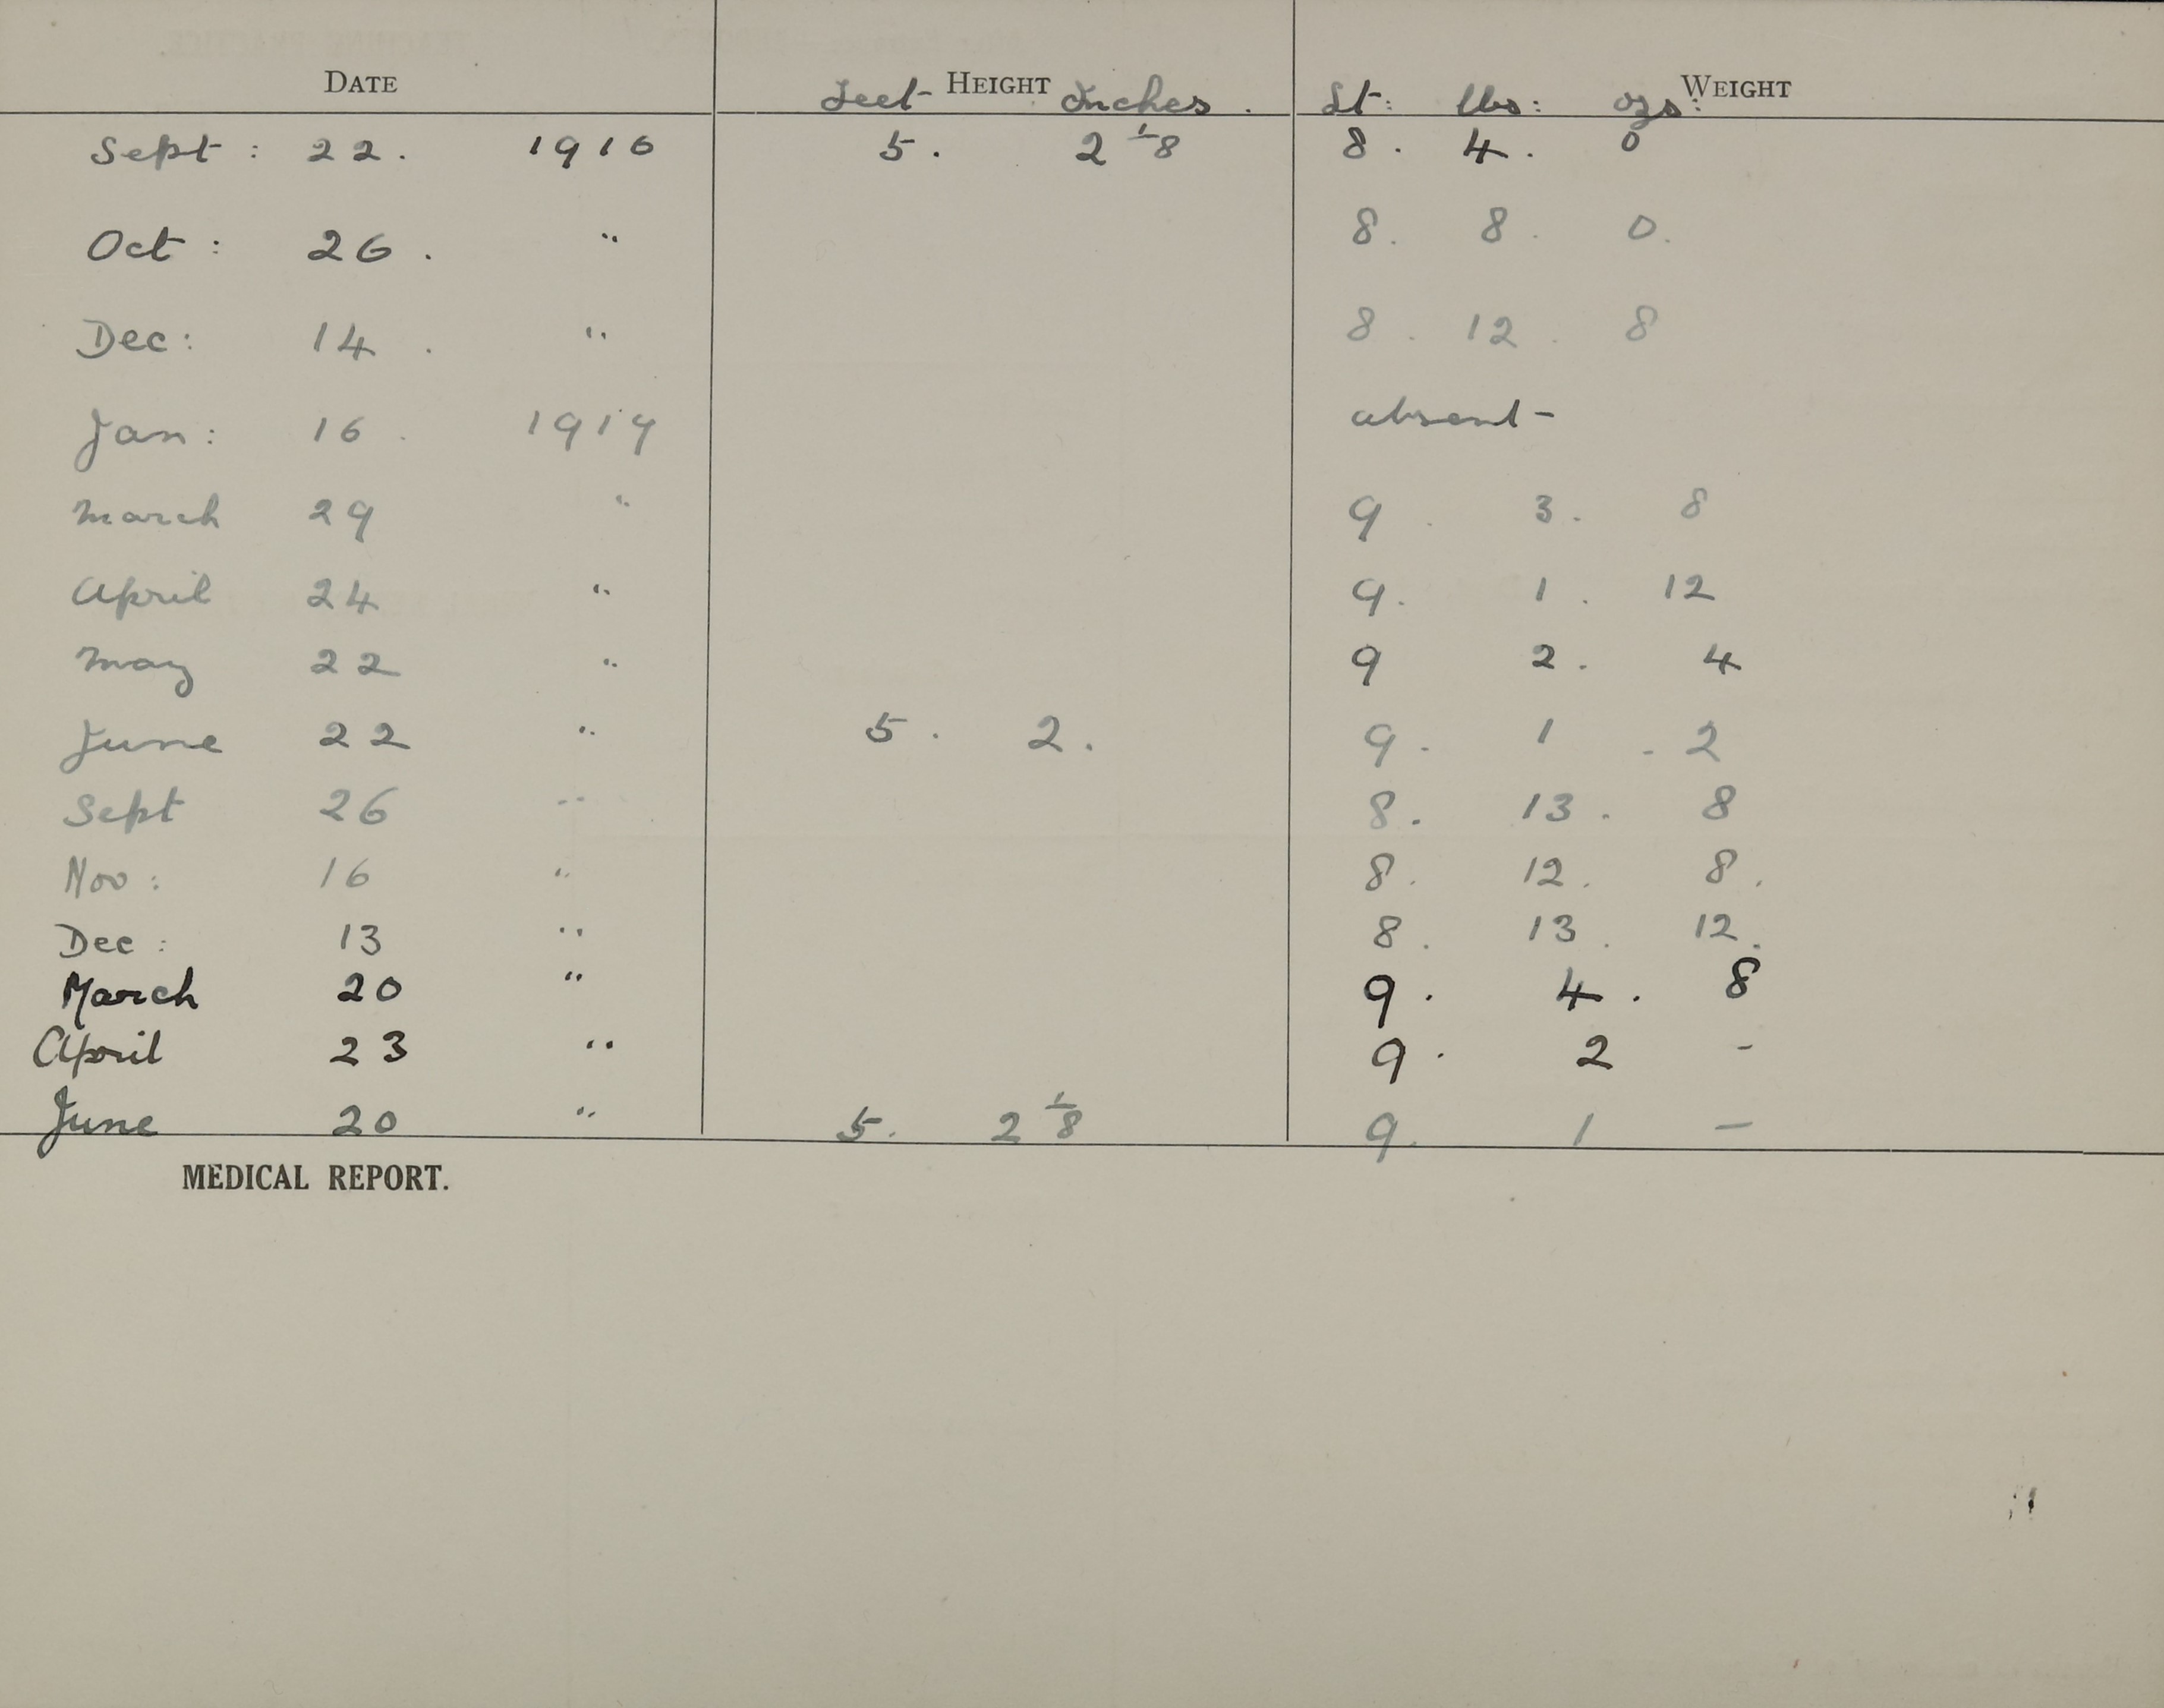 DATE HEIGHT WEIGHT
Feet Inches. St: lbs: ozs:
Sept: 22. 1916 5. 2 1/8 8. 4. 0
Oct: 26. " 8. 8. 0.
Dec: 14. " 8. 12. 8
Jan: 16. 1917 absent-
March 29 " 9. 3. 8
April 24 " 9. 1. 12
May 22 " 9 2. 4
June 22 " 5. 2. 9. 1 - 2
Sept 26 " 8. 13. 8
Nov: 16 " 8. 12. 8.
Dec: 13 " 8. 13. 12.
March 20 " 9. 4. 8
April 23 " 9. 2 -
June 20 " 5. 2 1/8 9. 1 -
MEDICAL REPORT.